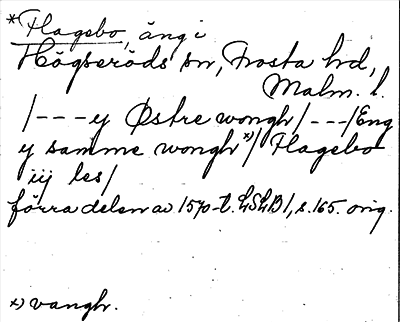 *Flagebo, äng i
Högseröds sn, Frosta hd,
Malm. l.
/---y Østre wongh/---/Eng
y samme wongh*)/ Flagebo
iij les/
förra delen av 1570-t. LSLB1, s. 165. orig.
*) vangh.